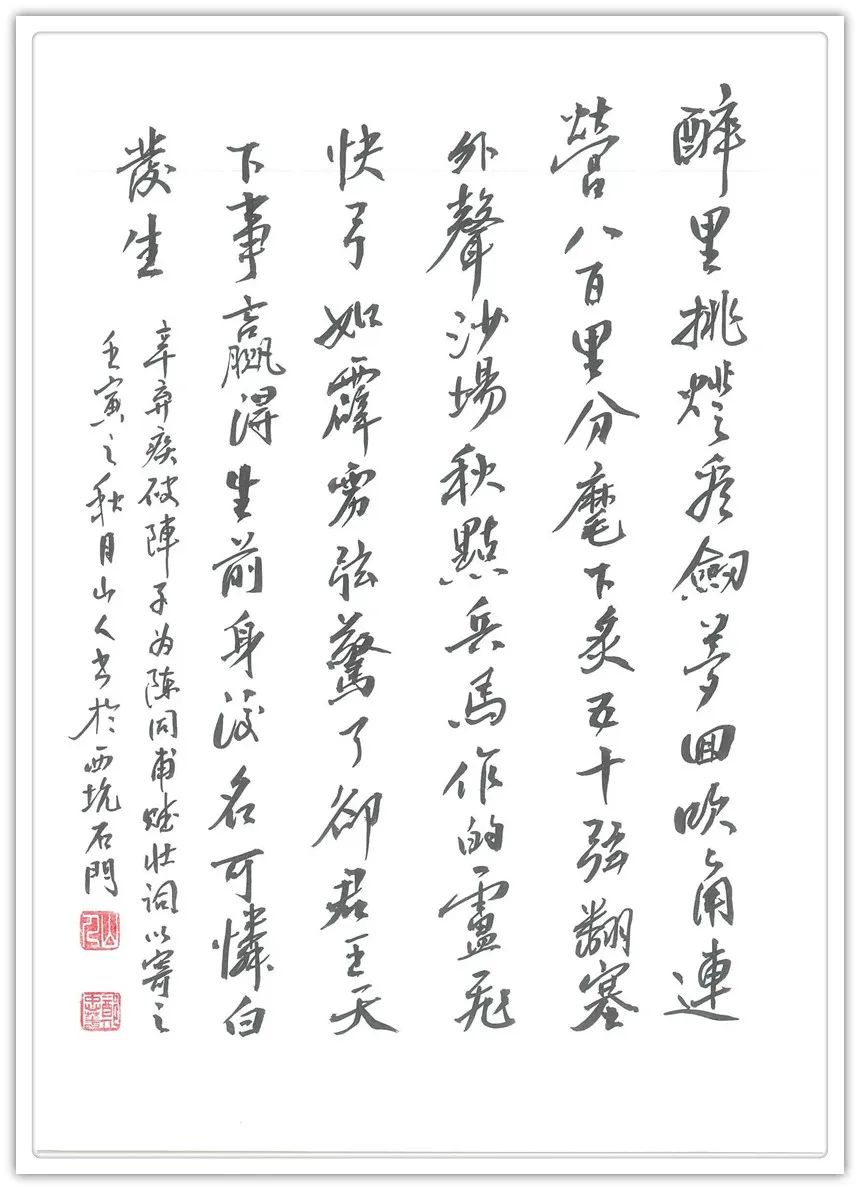 醉里挑燈看劍夢回吹角連
營八百里分麾下炙五十弦翻塞
外聲沙場秋點兵馬作的盧飛
快弓如霹靂弦驚了卻君王天
下事贏得生前身後名可憐白
發生
辛弃疾破陣子为陳同甫賦壯詞以寄之
壬寅之秋月山人书於西坑石門